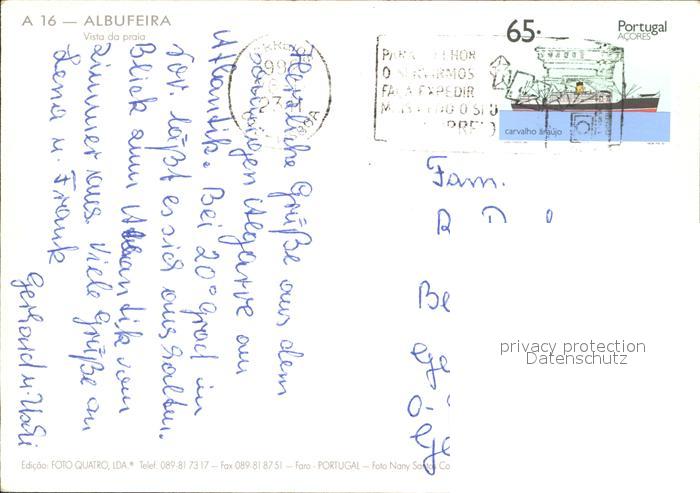 A 16 — ALBUFEIRA
Vista da praia
Herzliche Grüße aus dem
sonnigen Algarve am
Atlantik. Bei 20° Grad im
läßt es sich aushalten.
Blick zum Atlantik vom
Zimmer aus. Viele Grüße an
Lena u. Frank
Gerhard u.
65.
Portugal
AÇORES
carvalho araújo
PARA MELHOR
O SERVIRMOS
FAÇA EXPEDIR
MAIS CEDO O SEU
CORREIO
Fam.
Be
privacy protection
Datenschutz
Edição: FOTO QUATRO, LDA.® Telef. 089-81 73 17 — Fax 089-81 87 51 — Faro - PORTUGAL — Foto Nany Santos Co